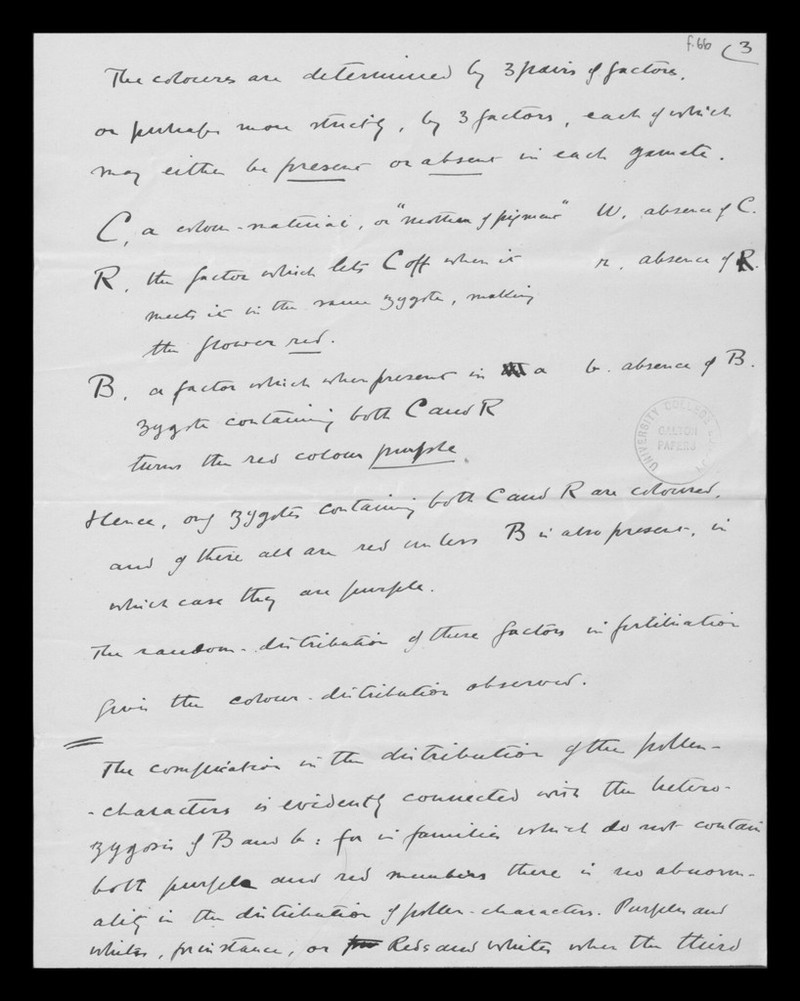 f.66 (3
The colours are determined by 3 pairs of factors,
or perhaps more strictly, by 3 factors, each of which
may either be present or absent in each gamete.
C, a colour-material, or "mother of pigment" W, absence of C.
R, the factor which lets C off when it r, absence of R.
meets it in the same zygote, making
the flower red.
B, a factor which when present in a b. absence of B.
zygote containing both C and R
turns the red colour purple.
UNIVERSITY COLLEGE
GALTON
PAPERS
Hence, only zygotes containing both C and R are coloured,
and of these all are red unless B is also present, in
which case they are purple.
The random-distribution of these factors in fertilisation
gives the colour-distribution observed.
The complication in the distribution of the pollen-
-characters is evidently connected with the hetero-
zygosis of B and b: for in families which do not contain
both purple and red members there is no abnorm-
ality in the distribution of pollen-characters. Purples and
whites, for instance, or Reds and whites when the third